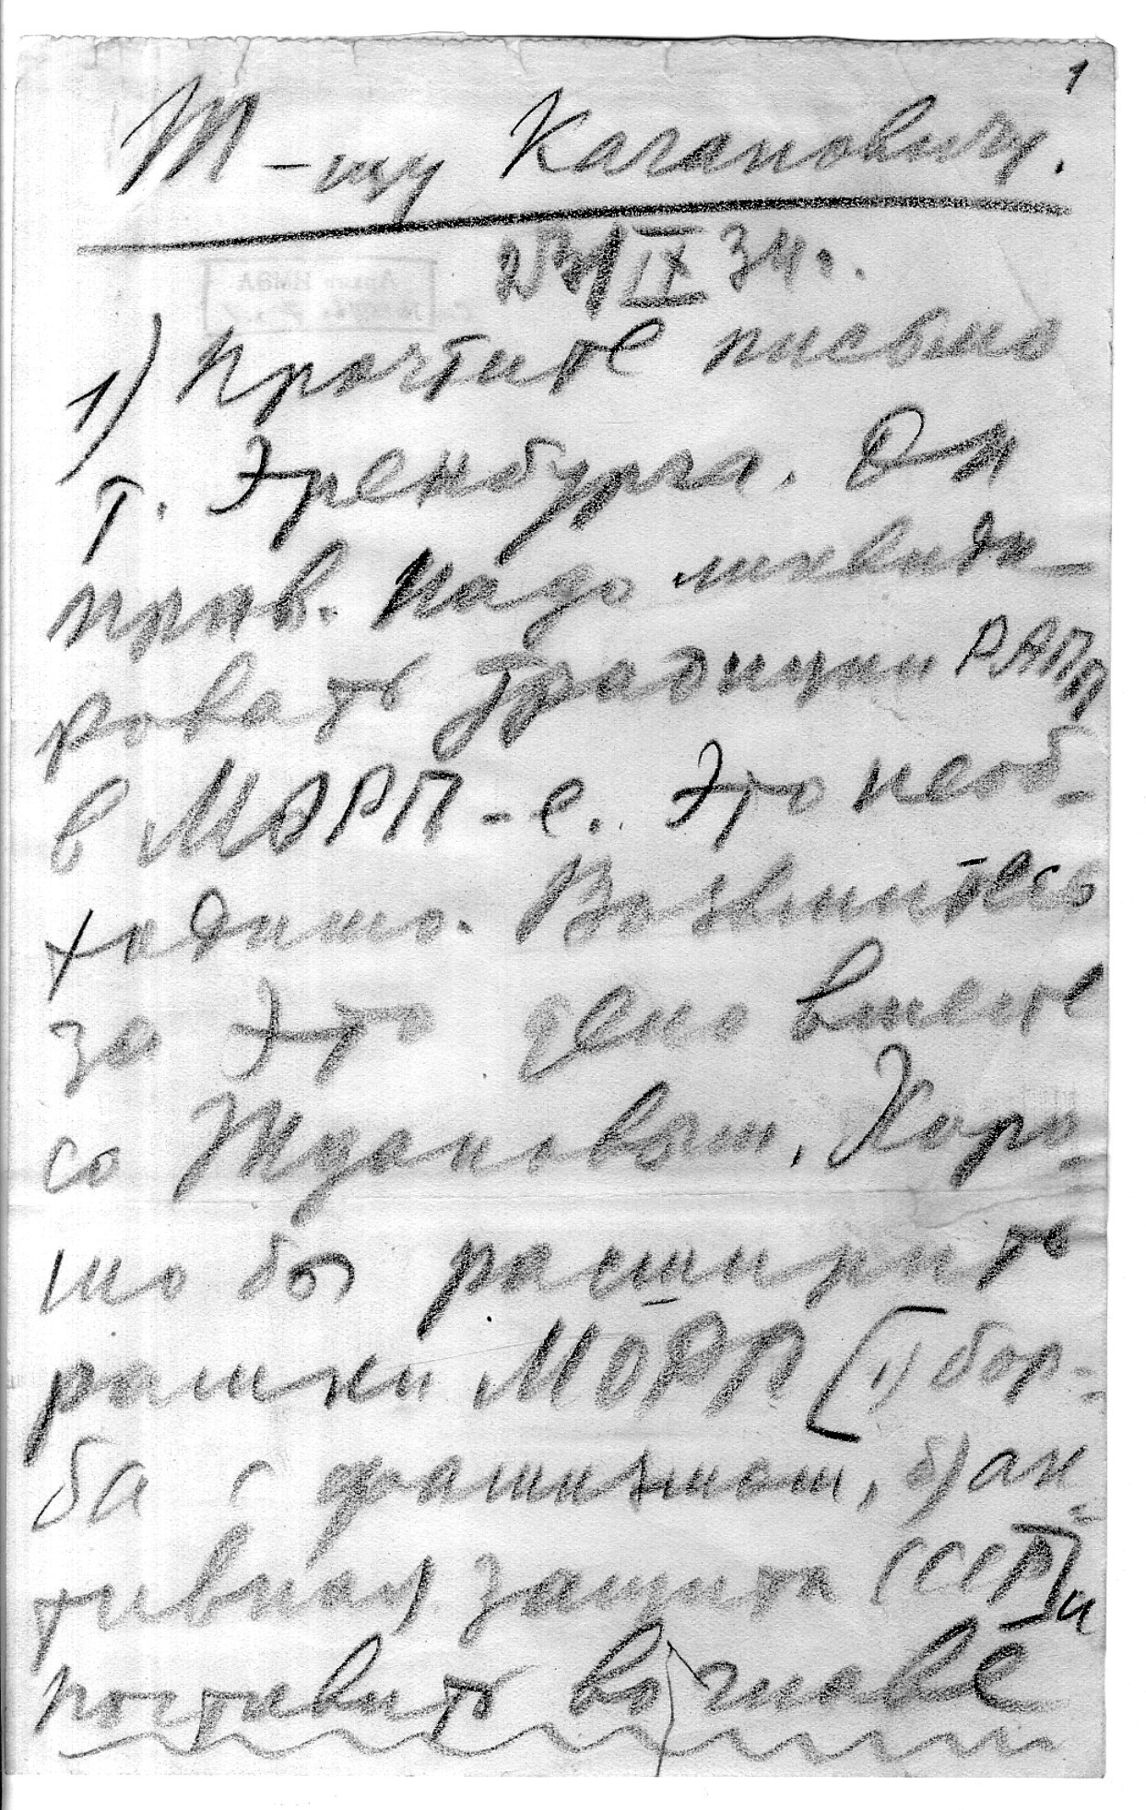 1
Т-щу Кагановичу.
23/IX 34.
1) Прочтите письмо
т. Эренбурга. Он
прав. Надо ликвиди-
ровать традиции РАПП
в МОРП-е. Это необ-
ходимо. Возьмитесь
за это дело вместе
со Ждановым. Хоро-
шо бы расширить
рамки МОРП [1) борь-
ба с фашизмом, б) ак-
тивная защита СССР] и
поставить во главе